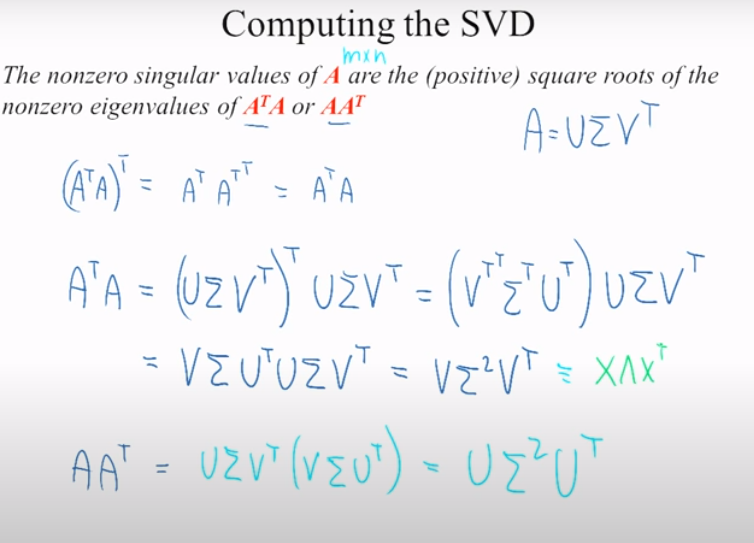 Computing the SVD
m×n
The nonzero singular values of A are the (positive) square roots of the
nonzero eigenvalues of AᵀA or AAᵀ
A=UΣVᵀ
(AᵀA)ᵀ = AᵀAᵀᵀ = AᵀA
AᵀA = (UΣVᵀ)ᵀ UΣVᵀ = (VᵀᵀΣᵀUᵀ) UΣVᵀ
= VΣUᵀUΣVᵀ = VΣ²Vᵀ = XΛXᵀ
AAᵀ = UΣVᵀ(VΣUᵀ) = UΣ²Uᵀ